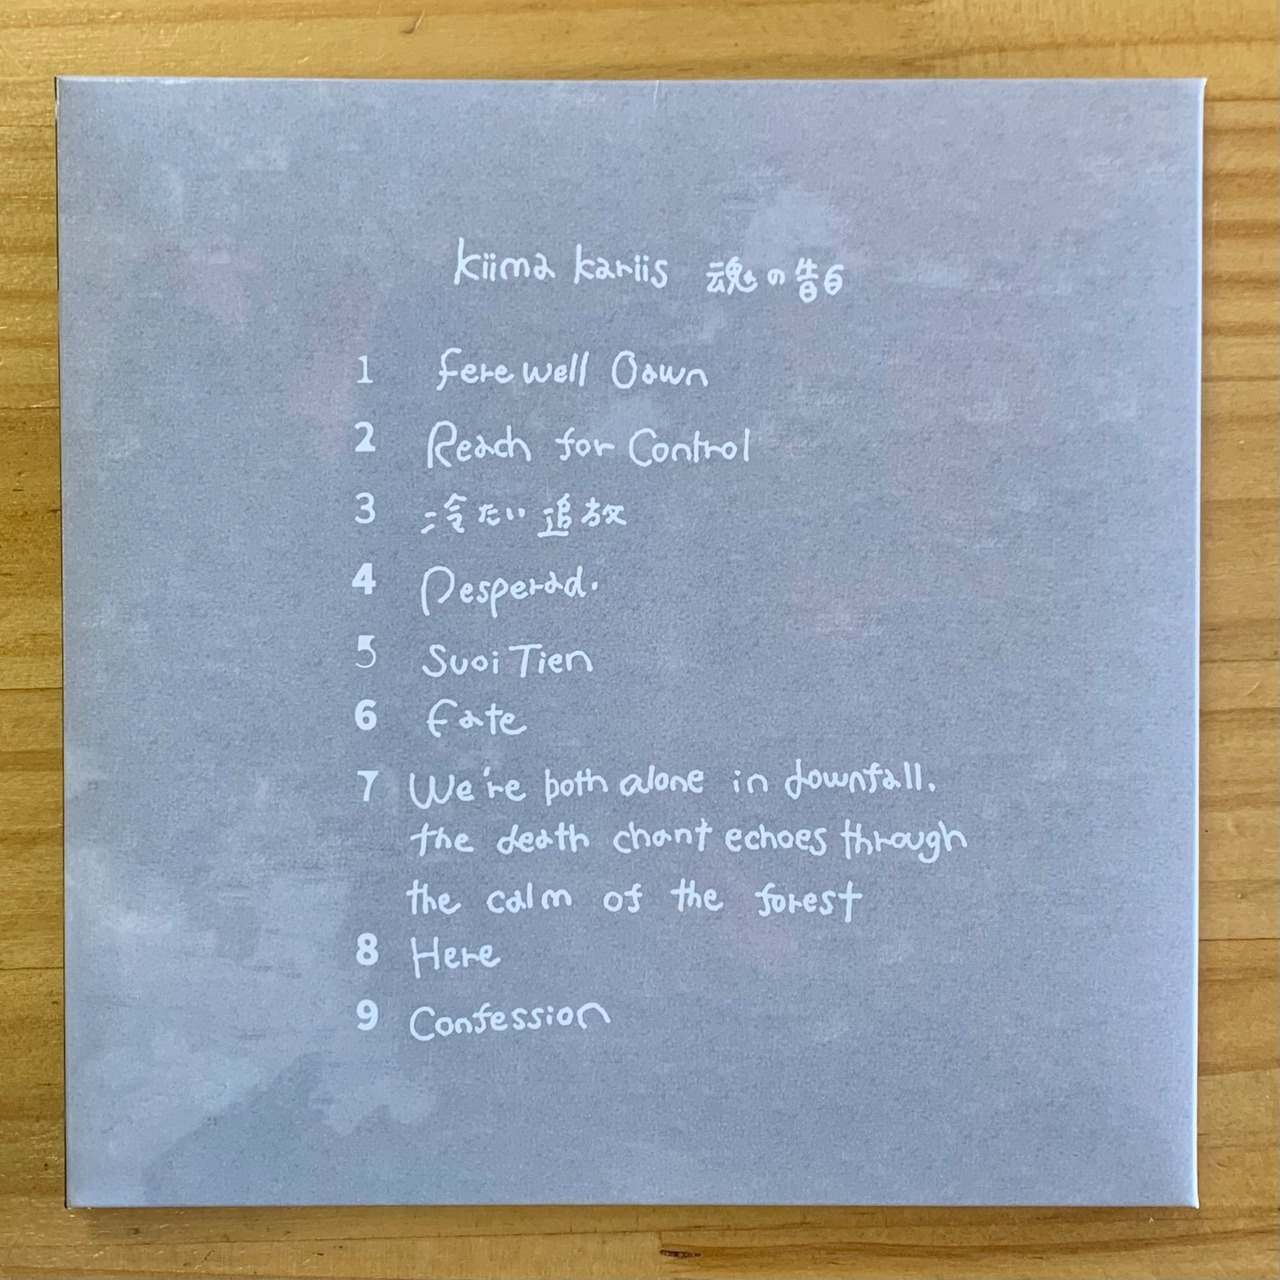 kiima kariis 魂の告白
1 farewell Dawn
2 Reach for Control
3 冷たい追放
4 Desperad.
5 Suoi Tien
6 fate
7 We're both alone in downfall.
the death chant echoes through
the calm of the forest
8 Here
9 Confession